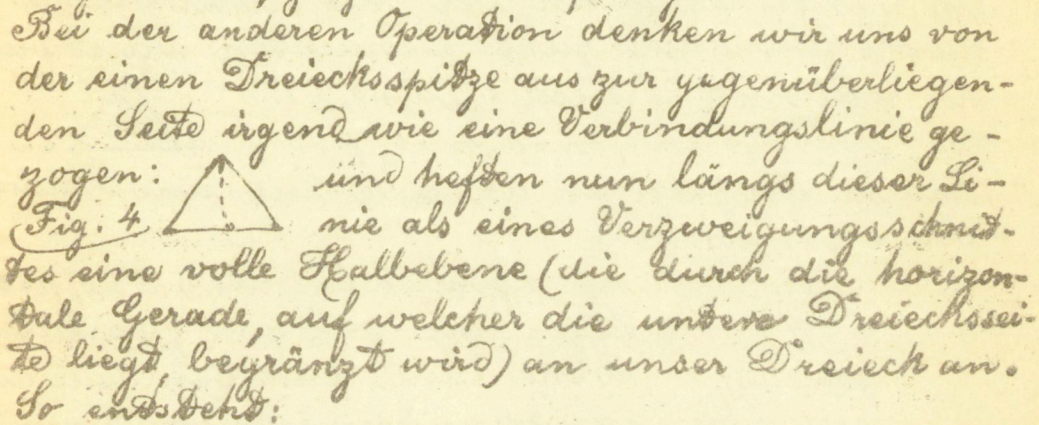 Bei der anderen Operation denken wir uns von
der einen Dreiecksspitze aus zur gegenüberliegen-
den Seite irgend wie eine Verbindungslinie ge-
zogen: und heften nun längs dieser Li-
Fig. 4 nie als eines Verzweigungsschnit-
tes eine volle Halbebene (die durch die horizon-
tale Gerade, auf welcher die untere Dreiecksssei-
te liegt, begränzt wird) an unser Dreieck an.
So entsteht: